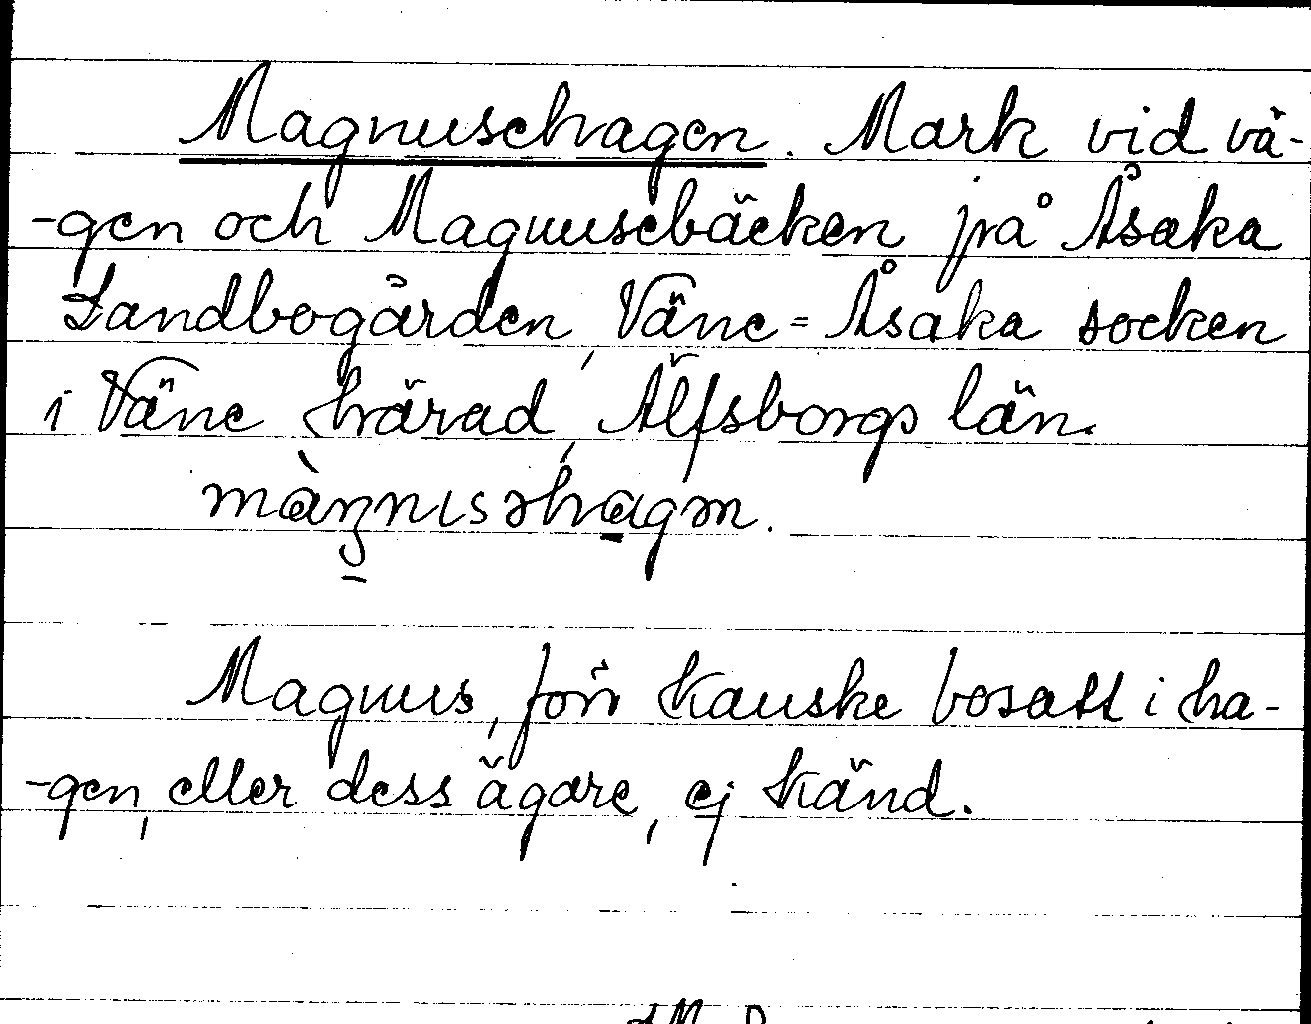 Magnusehagen. Mark vid vä-
-gen och Magnusebäcken på Åsaka
Landbogården, Väne=Åsaka socken
i Väne härad, Älfsborgs län.
Magnus, förr kanske bosatt i ha-
-gen, eller dess ägare, ej känd.